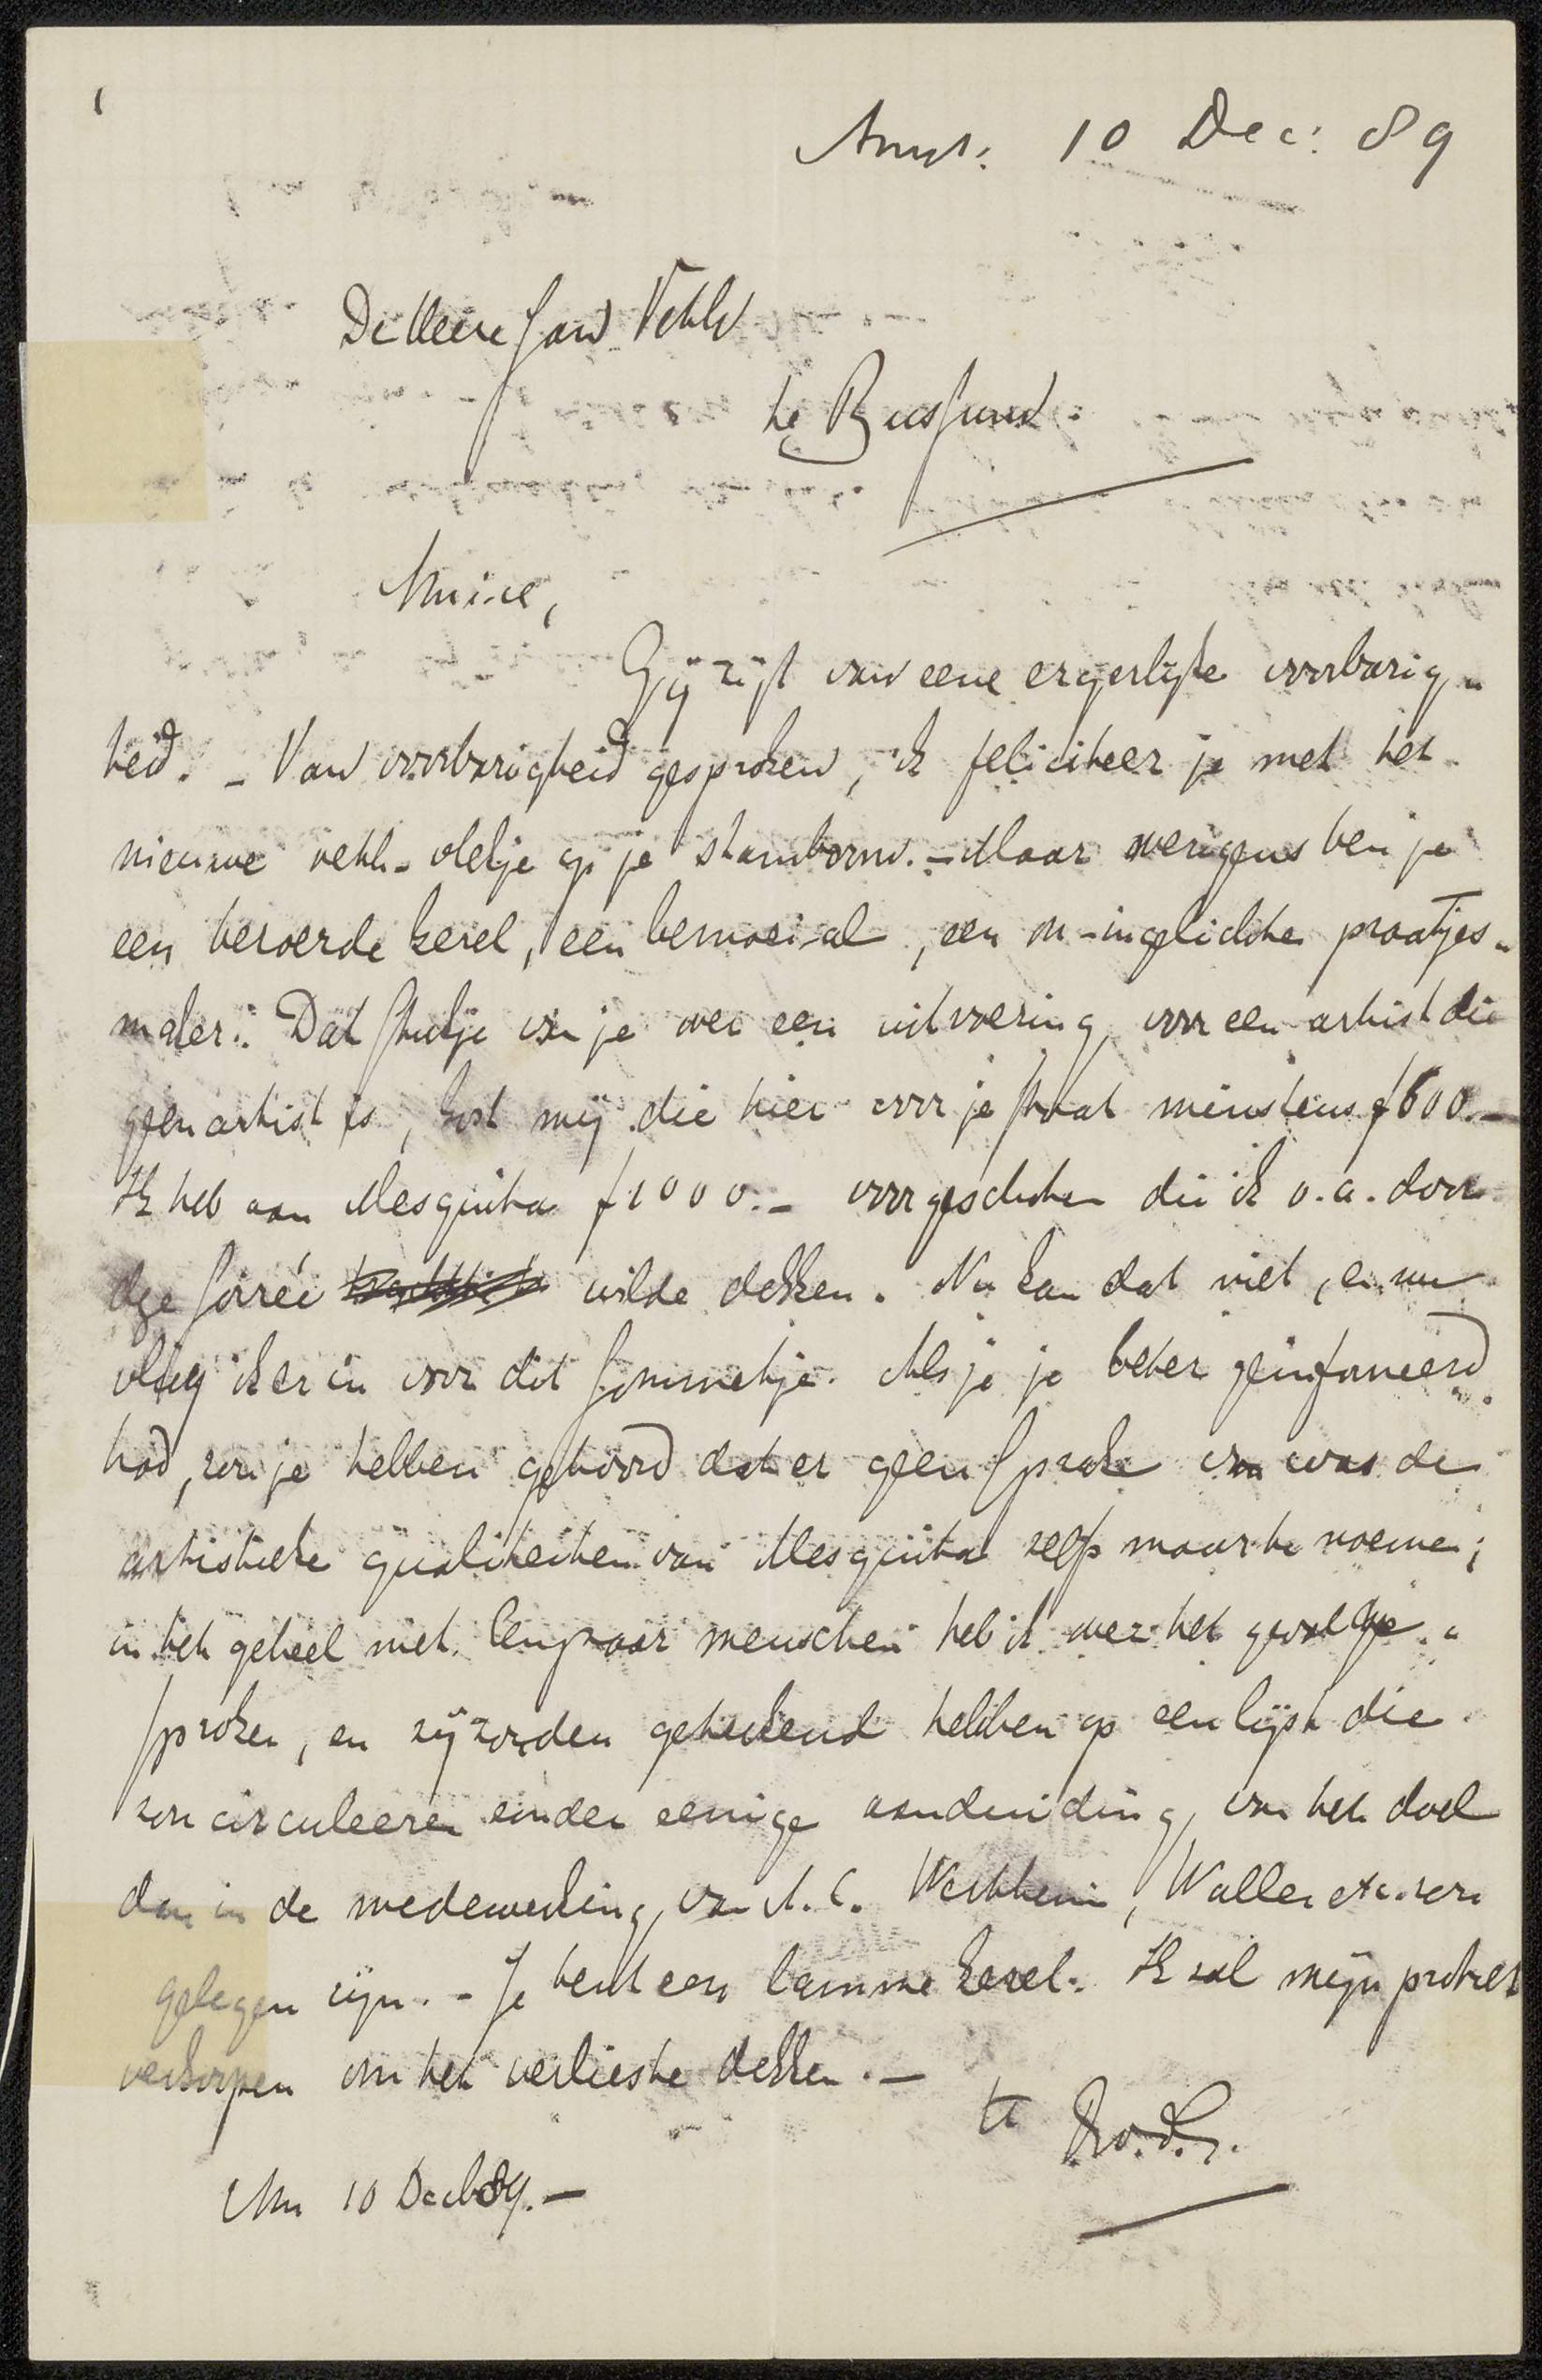 Amst: 10 Dec: 89
De Heere Jan Veth
te Bussum
Amice,
Gij zijt van eene ergerlijke voorbarig-
heid. - Van voorbarigheid gesproken, ik feliciteer je met het
nieuwe veth-vlekje op je stamboom. - Maar overigens ben je
een beroerde kerel, een bemoei-al, een on-ingelichte praatjes-
maker. Dat stukje van je over een uitvoering voor een artist die
geen artist is, kost mij die hier voor je staat minstens f 600.-
Ik heb aan Mesquita f 1000.- voorgeschoten die ik o.a. door
die soirée wilde dekken. Nu kan dat niet, en nu
vlieg ik er in voor dit sommetje. Als je je beter geinformeerd
had, zou je hebben gehoord dat er geen sprake van was de
artistieke qualiteiten van Mesquita zelfs maar te noemen;
in het geheel niet. Een paar menschen heb ik over het geval ge-
sproken, en zij zouden geteekend hebben op een lijst die
zou circuleeren zonder eenige aanduiding van het doel
dan in de medewerking van A. C. Wertheim, Waller etc. zou
gelegen zijn. - Je bent een lamme kerel. Ik zal mijn portret
verkoopen om het verlies te dekken. -
tt
Am 10 Decb 89. -